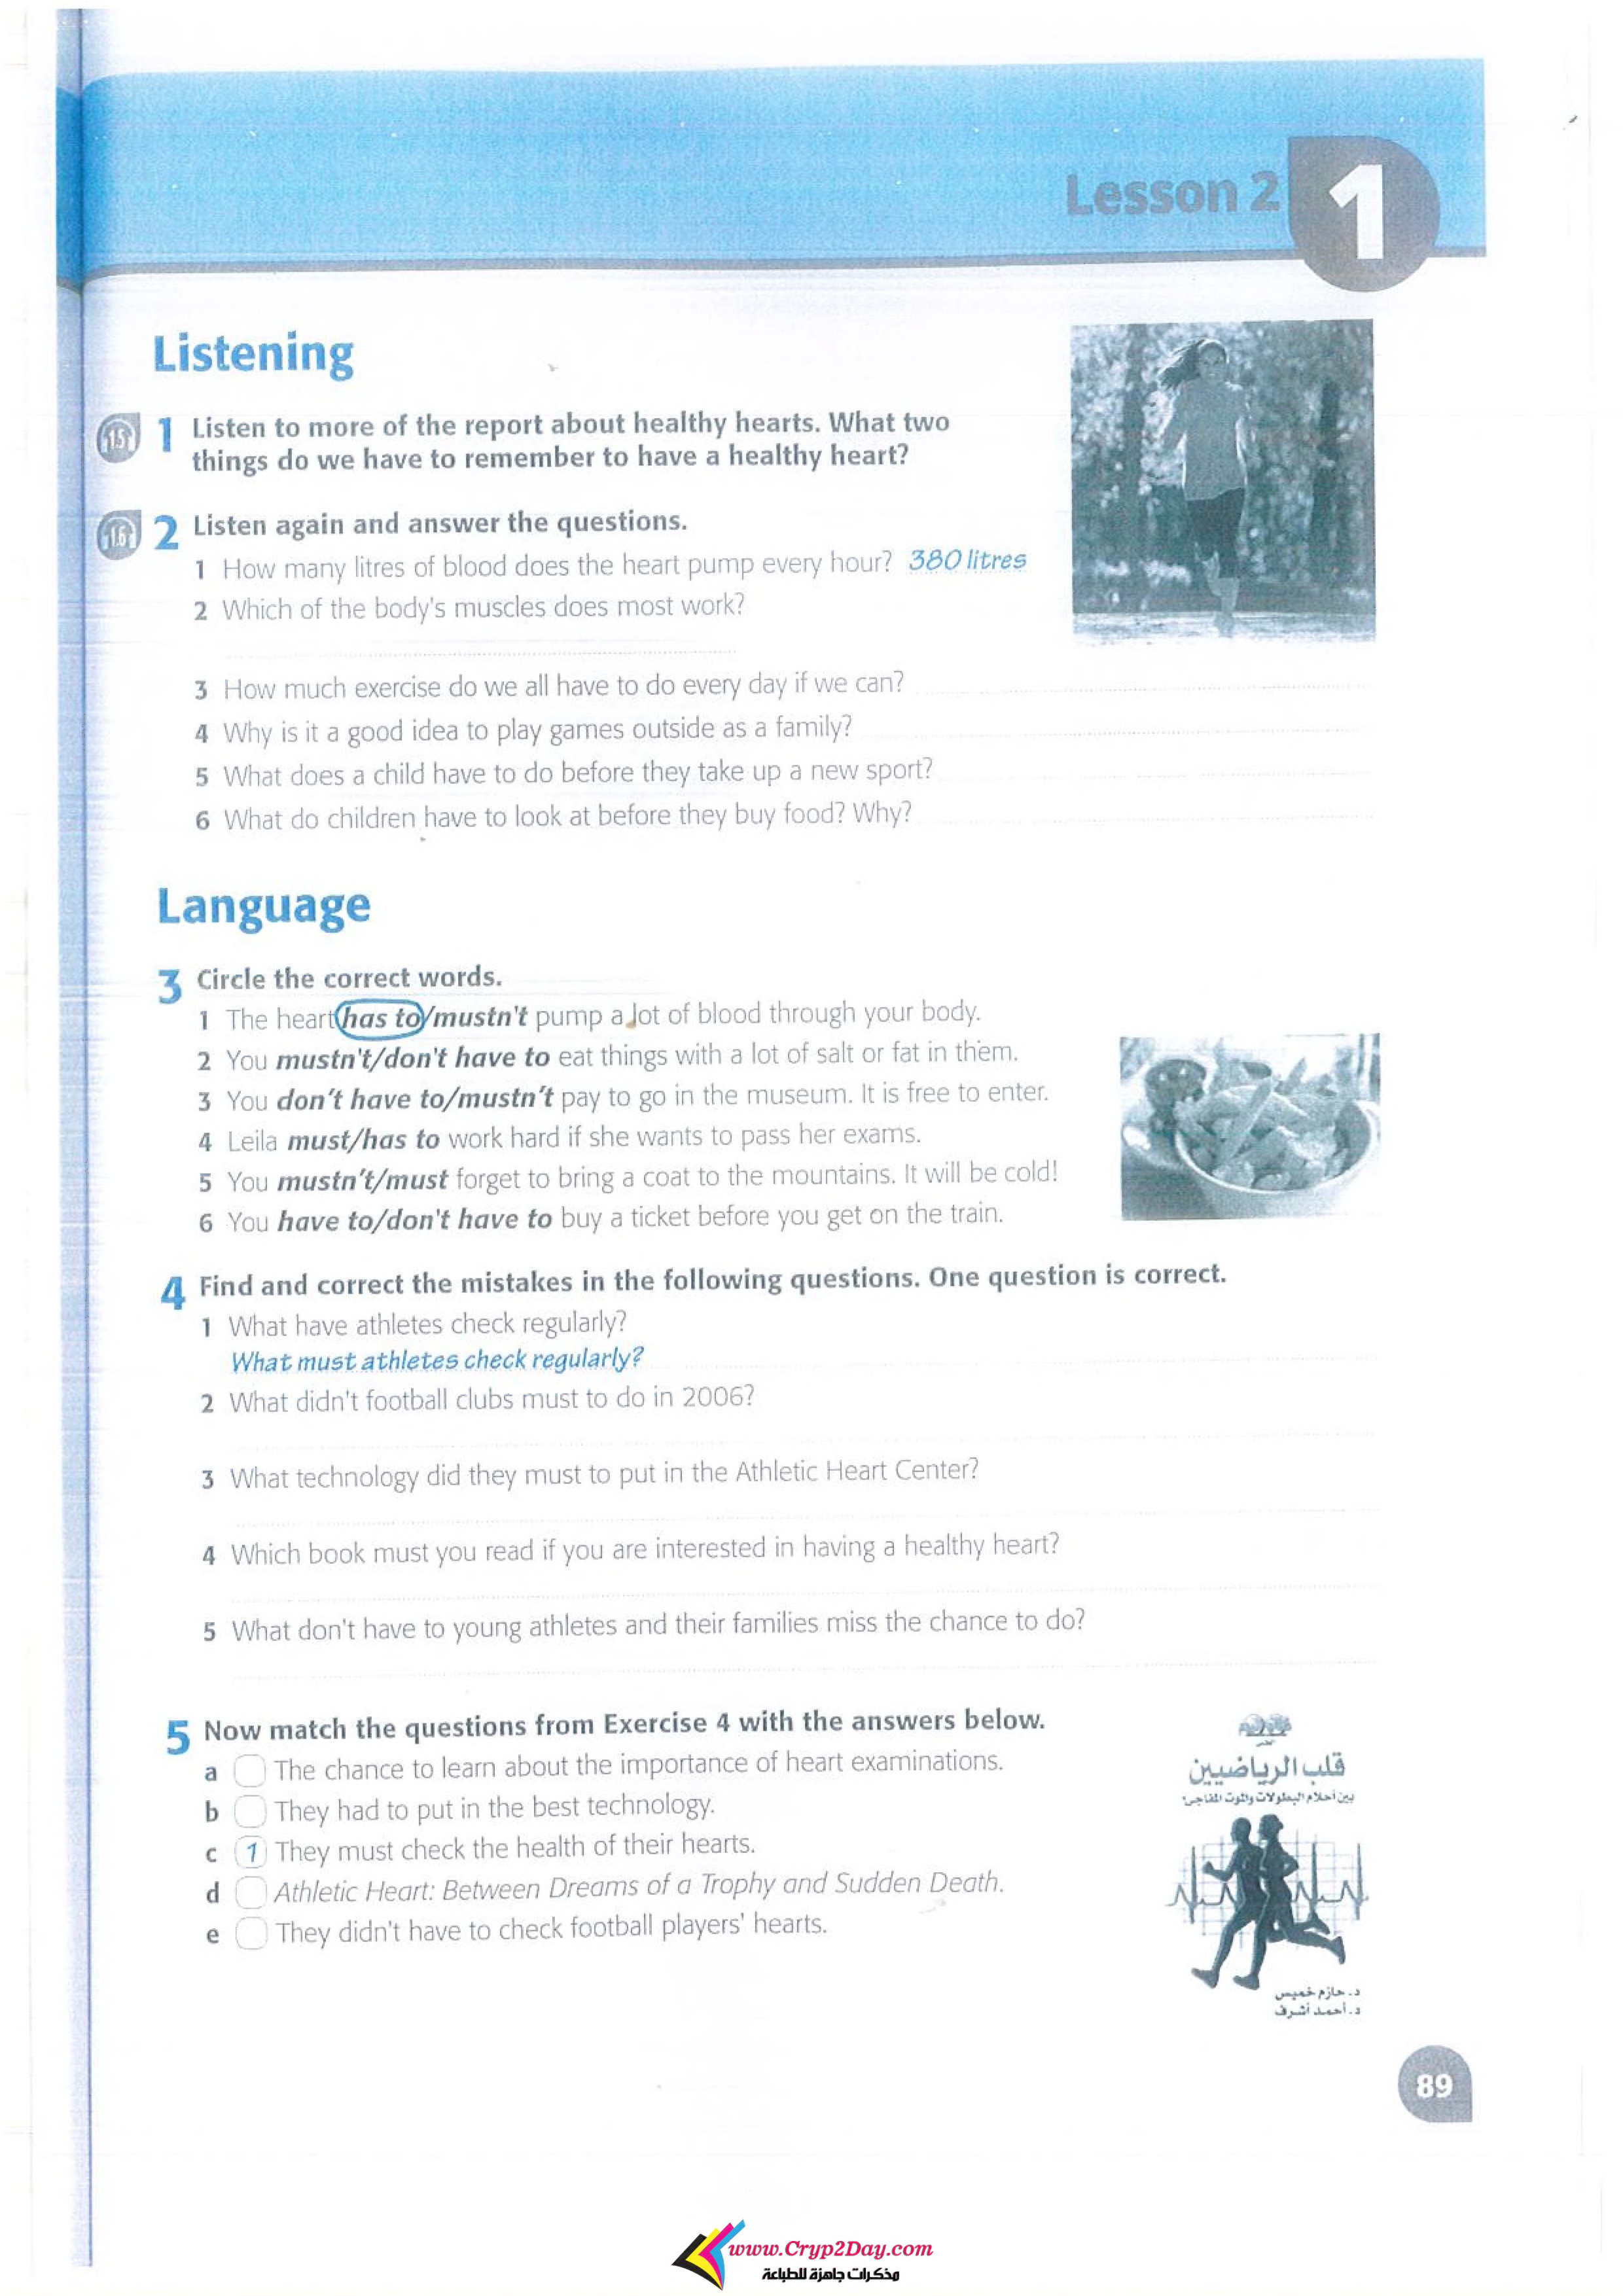 Lesson 2
1
Listening
1.5
1 Listen to more of the report about healthy hearts. What two
things do we have to remember to have a healthy heart?
1.6
2 Listen again and answer the questions.
1 How many litres of blood does the heart pump every hour? 380 litres
2 Which of the body's muscles does most work?
3 How much exercise do we all have to do every day if we can?
4 Why is it a good idea to play games outside as a family?
5 What does a child have to do before they take up a new sport?
6 What do children have to look at before they buy food? Why?
Language
3 Circle the correct words.
1 The heart has to/mustn't pump a lot of blood through your body.
2 You mustn't/don't have to eat things with a lot of salt or fat in them.
3 You don't have to/mustn't pay to go in the museum. It is free to enter.
4 Leila must/has to work hard if she wants to pass her exams.
5 You mustn't/must forget to bring a coat to the mountains. It will be cold!
6 You have to/don't have to buy a ticket before you get on the train.
4 Find and correct the mistakes in the following questions. One question is correct.
1 What have athletes check regularly?
What must athletes check regularly?
2 What didn't football clubs must to do in 2006?
3 What technology did they must to put in the Athletic Heart Center?
4 Which book must you read if you are interested in having a healthy heart?
5 What don't have to young athletes and their families miss the chance to do?
5 Now match the questions from Exercise 4 with the answers below.
a The chance to learn about the importance of heart examinations.
b They had to put in the best technology.
c 1 They must check the health of their hearts.
d Athletic Heart: Between Dreams of a Trophy and Sudden Death.
e They didn't have to check football players' hearts.
قلب الرياضيين
بين أحلام البطولات والموت المفاجئ
د. حازم خميس
د. أحمد أشرف
89
www.Cryp2Day.com
مذكرات جاهزة للطباعة